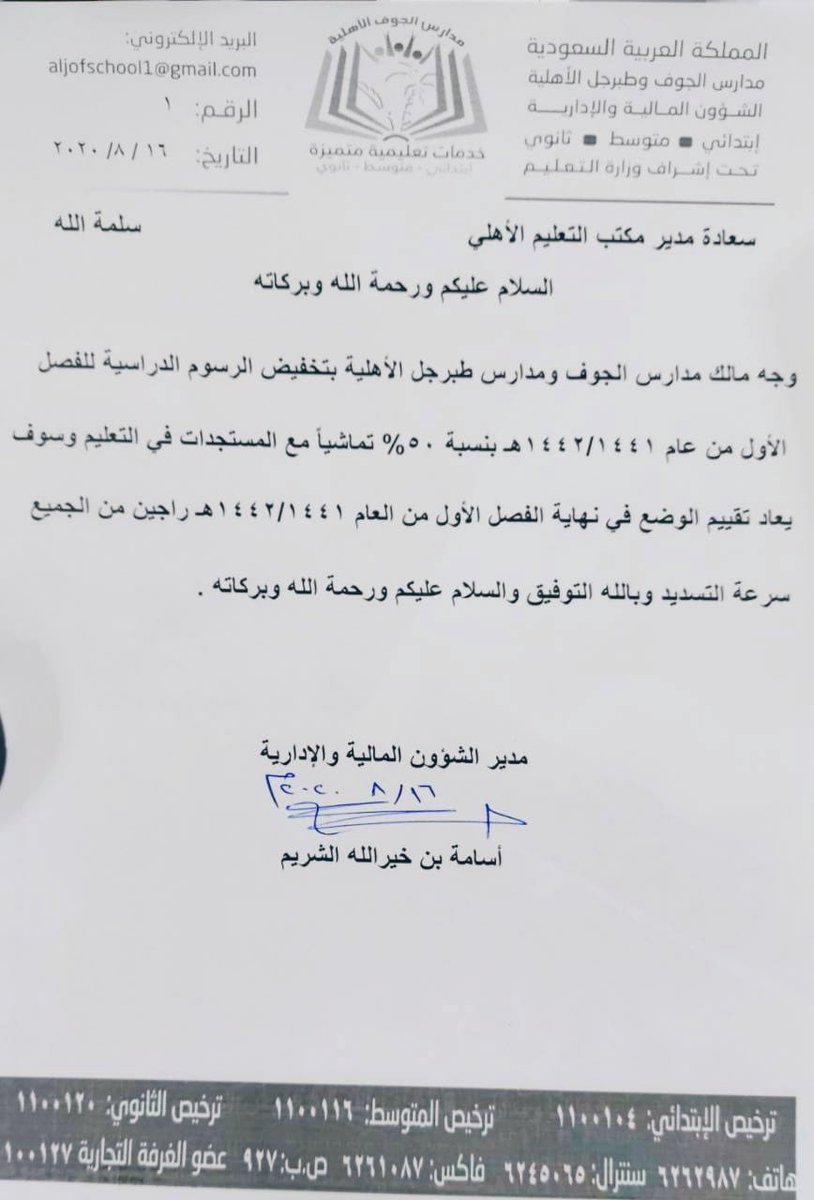 المملكة العربية السعودية
مدارس الجوف وطبرجل الأهلية
الشؤون المالية والإدارية
إبتدائي ■ متوسط ■ ثانوي
تحت إشراف وزارة التعليم
مدارس الجوف الأهلية
خدمات تعليمية متميزة
إبتدائي - متوسط - ثانوي
البريد الإلكتروني:
aljofschool1@gmail.com
الرقم: ١
التاريخ: ١٦ / ٨/ ٢٠٢٠
سعادة مدير مكتب التعليم الأهلي سلمة الله
السلام عليكم ورحمة الله وبركاته
وجه مالك مدارس الجوف ومدارس طبرجل الأهلية بتخفيض الرسوم الدراسية للفصل
الأول من عام ١٤٤٢/١٤٤١هـ بنسبة ٥٠% تماشياً مع المستجدات في التعليم وسوف
يعاد تقييم الوضع في نهاية الفصل الأول من العام ١٤٤٢/١٤٤١هـ راجين من الجميع
سرعة التسديد وبالله التوفيق والسلام عليكم ورحمة الله وبركاته .
مدير الشؤون المالية والإدارية
١٦/ ٨ ٢٠٢٠م
أسامة بن خيرالله الشريم
ترخيص الإبتدائي: ١١٠٠١٠٤ ترخيص المتوسط: ١١٠٠١١٦ ترخيص الثانوي: ١١٠٠١٢٠
هاتف: ٦٢٦٢٩٨٧ سنترال: ٦٢٤٥٠٦٥ فاكس: ٦٢٦١٠٨٧ ص.ب: ٩٢٧ عضو الغرفة التجارية ١٠٠١٢٧